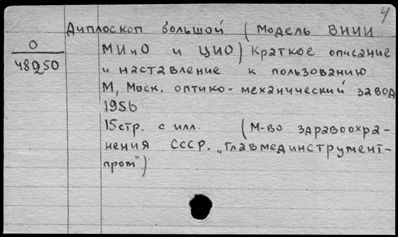 4
Диплоскоп большой (Модель ВНИИ
О
48250
МИиО и ЦИО) Краткое описание
и наставление к пользованию
М, Моск. оптико-механический завод
1956
15стр. с илл. (М-во здравоохра-
нения СССР. „Главмединструмент-
пром")